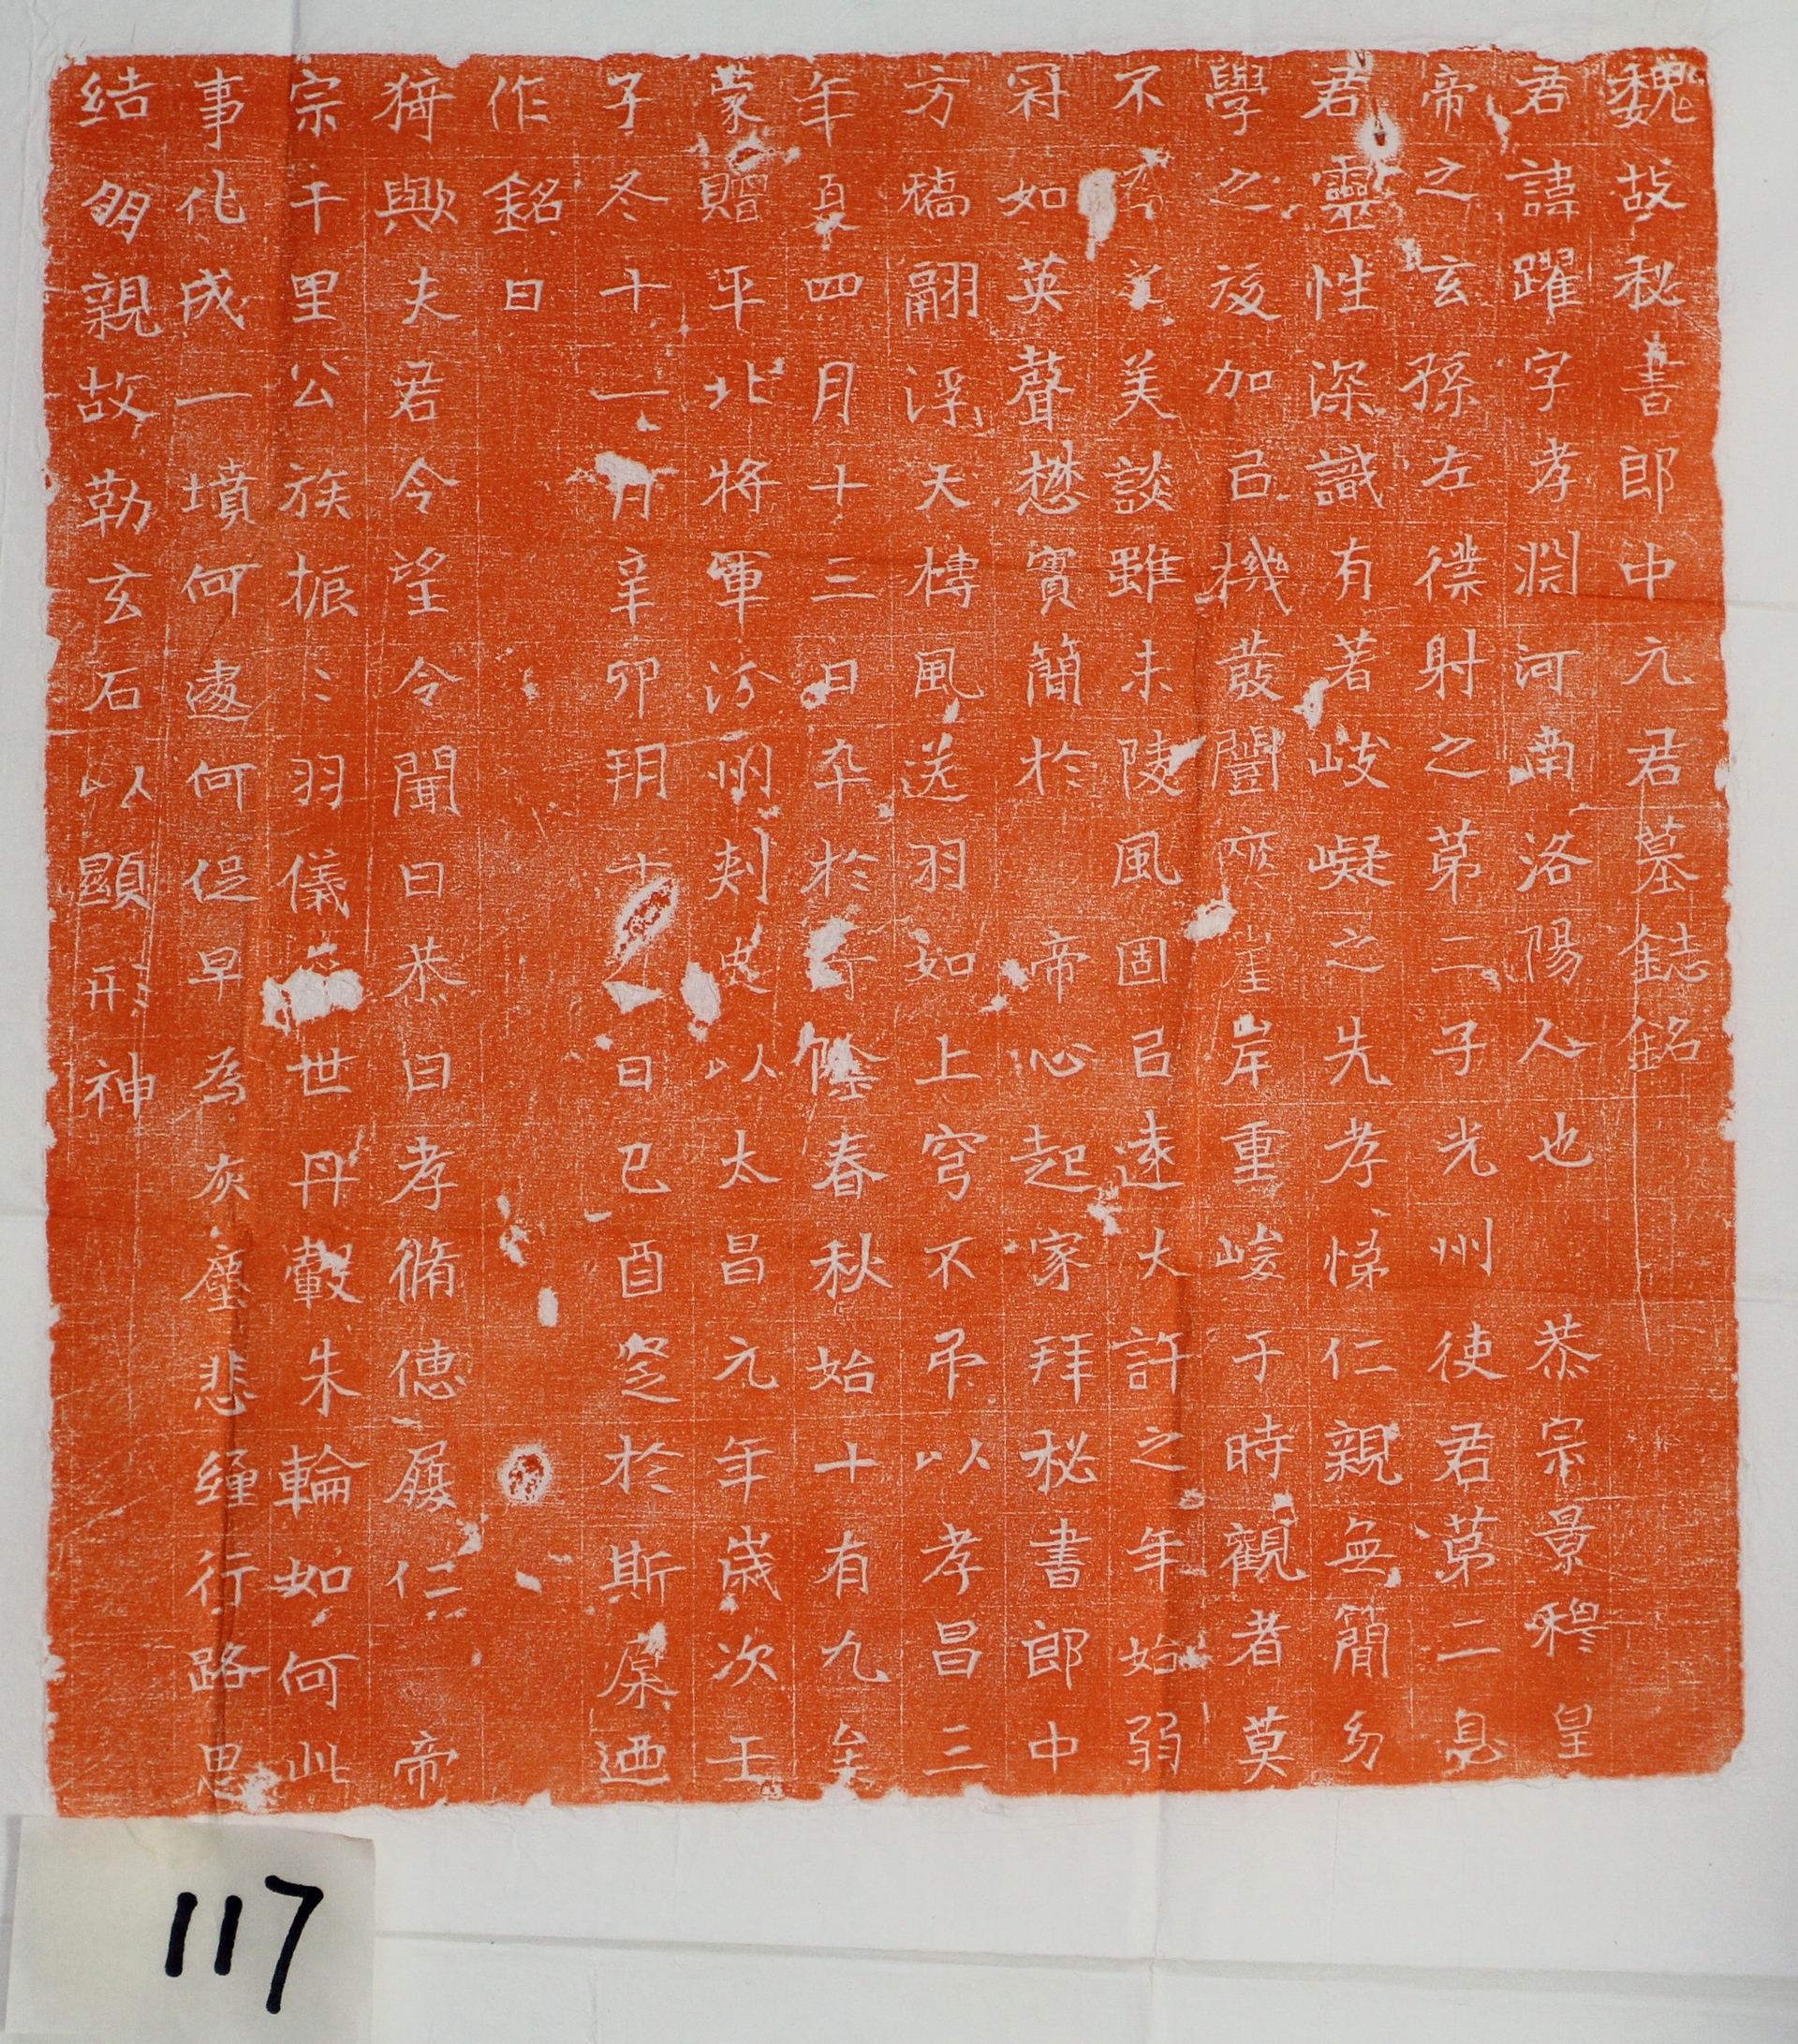 魏故秘書郎中元君墓誌銘
君諱躍字孝淵河南洛陽人也恭宗景穆皇
帝之玄孫左僕射之第二子光州使君第二息
君靈性深識有著岐嶷之先孝悌仁親無簡幼
學之後加㠯機發闓崖岸重峻于時觀者莫
不美談雖未陵風固㠯遠大許之年始弱
冠如英聲懋實簡於帝心起家拜秘書郎中
方矯翮浮天摶風送羽如上穹不弔以孝昌三
年夏四月十三日卒於春秋始十有九至
蒙贈平北將軍汾州刾史以太昌元年歲次壬
子冬十一月辛卯玥十日己酉窆於斯原迺
作銘曰
猗歟夫君令望令聞曰恭曰孝脩德履仁帝
宗千里公族振〻羽儀世丹轂朱輪如何此
事化成一墳何遽何促早為灰塵悲纏行路思
结朋親故勒玄石以顯形神
117